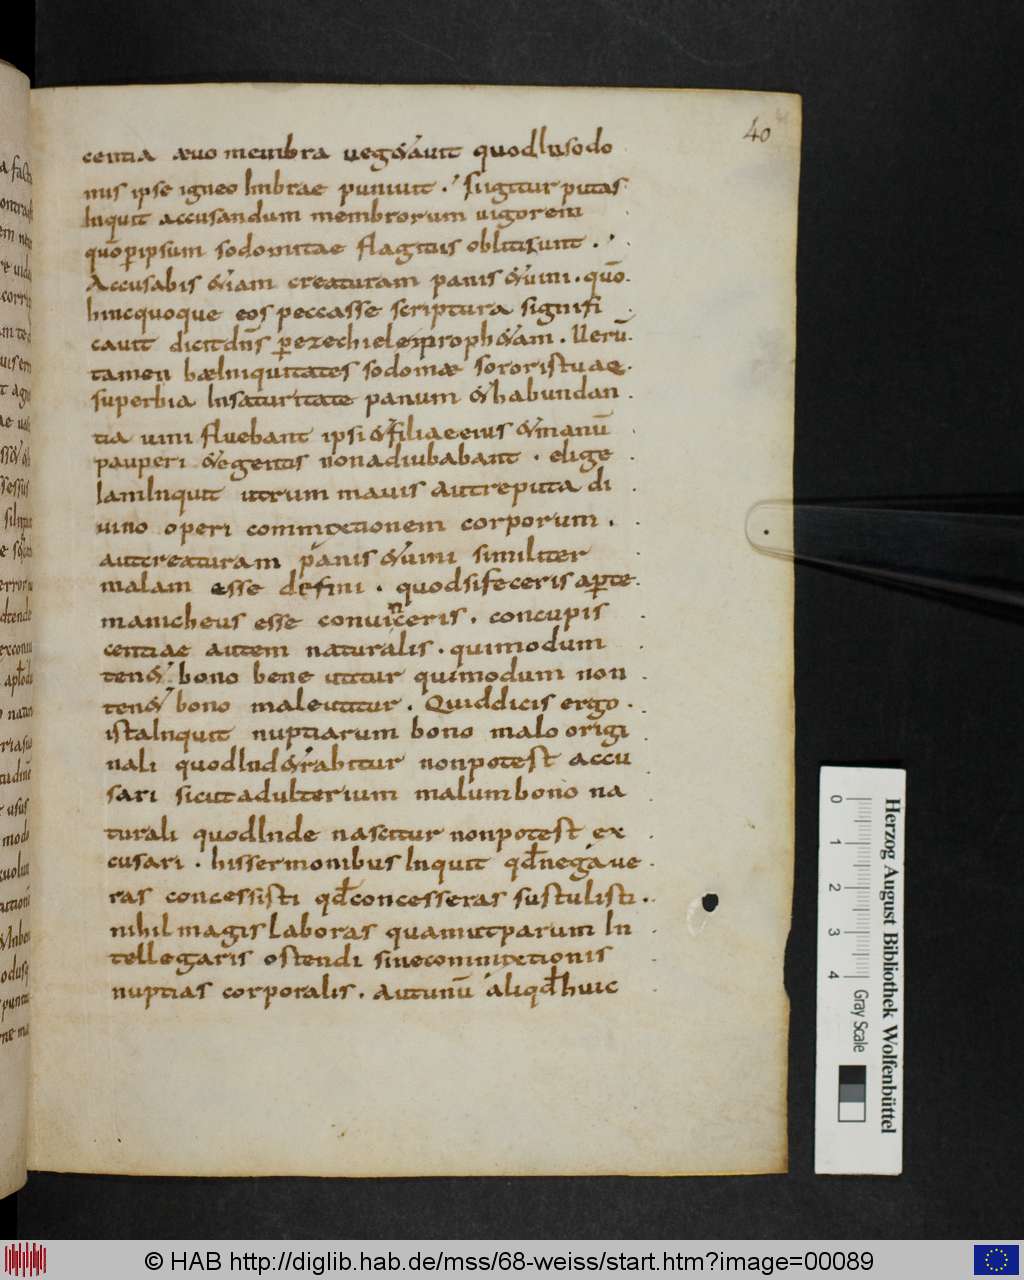 40
centia aevo membra vegetavit quod In sodo
mis ipse igneo Imbrae punivit. Si igitur putas
Inquit accusandum membrorum vigorem
quō p ipsum sodomitae flagitiis obliti sunt.
Accusabis etiam creaturam panis et vini. quō
hinc quoque eos peccasse scriptura signifi
cavit dicit dn̄s p ezechielem prophetam. Uerū
tamen hae Iniquitates sodomae sororis tuae
superbia In saturitate panum et habundan
tia vini fluebant ipsi et filiae eius et manū
pauperi et egentis non adiubabant. elige
Iam Inquit utrum mavis aut reputa di
vino operi commixtionem corporum.
aut creaturam panis et vini similiter
malam esse defini. quod si feceris aperte
manicheus esse convinceris. concupis
centiae autem naturalis. qui modum
tenet bono bene utitur qui modum non
tenet bono male utitur. Quid dicis ergo.
ista Inquit nuptiarum bono malo origi
nali quod Inde trabitur non potest accu
sari sicut adulterium malum bono na
turali quod Inde nascitur non potest ex
cusari. his sermonibus Inquit qđ negave
ras concessisti qđ concesseras sustulisti.
nihil magis laboras quam ut parum In
tellegaris ostendi sine commixtionis
nuptias corporalis. aut unū aliqđ huic
Herzog August Bibliothek Wolfenbüttel
0 1 2 3 4
Gray Scale
© HAB http://diglib.hab.de/mss/68-weiss/start.htm?image=00089